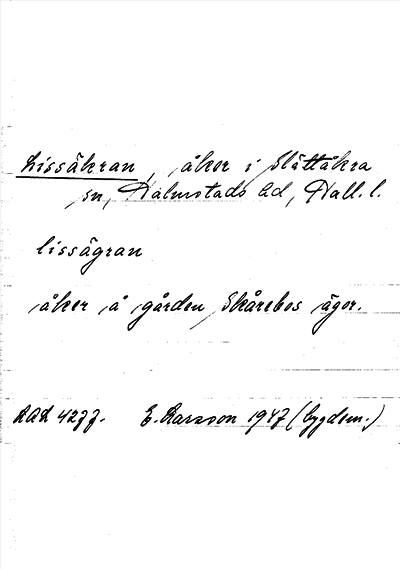 Lissäkran, åker i Slättåkra
sn, Halmstads hd, Hall. l.
lissägran
åker å gården Skårebos ägor.
DAL 4277. E. Larsson 1947 (bygdem.)